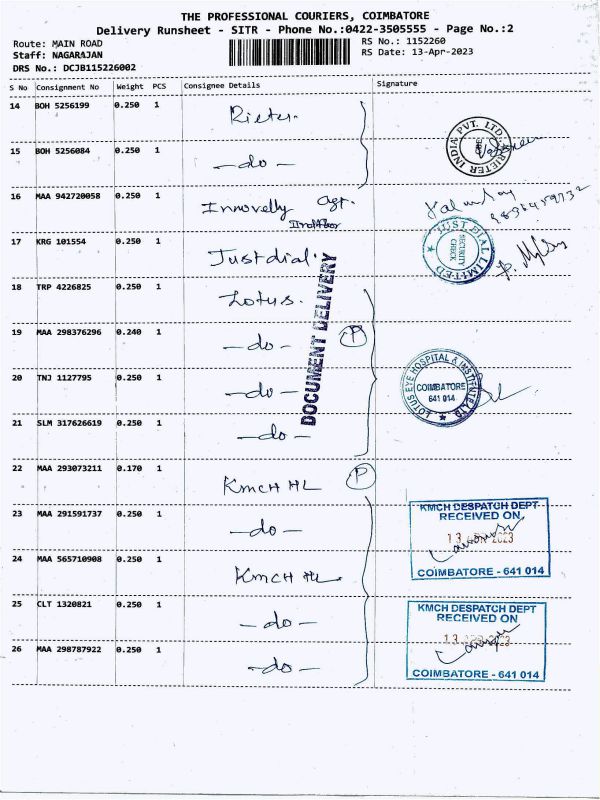 THE PROFESSIONAL COURIERS, COIMBATORE
Delivery Runsheet - SITR - Phone No.:0422-3505555 - Page No.:2
Route: MAIN ROAD
Staff: NAGARAJAN
DRS No.: DCJB115226002
RS No.: 1152260
RS Date: 13-Apr-2023
S No Consignment No Weight PCS Consignee Details Signature
14 BOH 5256199 0.250 1 Rieter.
RIETER INDIA PVT. LTD.
15 BOH 5256084 0.250 1 -do-
16 MAA 942720058 0.250 1 Innovelly Agt.
17 KRG 101554 0.250 1 Justdial.
JUST DIAL LIMITED
SECURITY
CHECK
18 TRP 4226825 0.250 1 Lotus.
DOCUMENT DELIVERY
19 MAA 298376296 0.240 1 -do- P
20 TNJ 1127795 0.250 1 -do-
LOTUS EYE HOSPITAL & INSTITUTE LTD
COIMBATORE
641 014
21 SLM 317626619 0.250 1 -do-
22 MAA 293073211 0.170 1 KMCH HL P
23 MAA 291591737 0.250 1 -do-
KMCH DESPATCH DEPT
RECEIVED ON
13 APR 2023
COIMBATORE - 641 014
24 MAA 565710908 0.250 1 KMCH HL.
25 CLT 1320821 0.250 1 -do-
KMCH DESPATCH DEPT
RECEIVED ON
13 APR 2023
COIMBATORE - 641 014
26 MAA 298787922 0.250 1 -do-